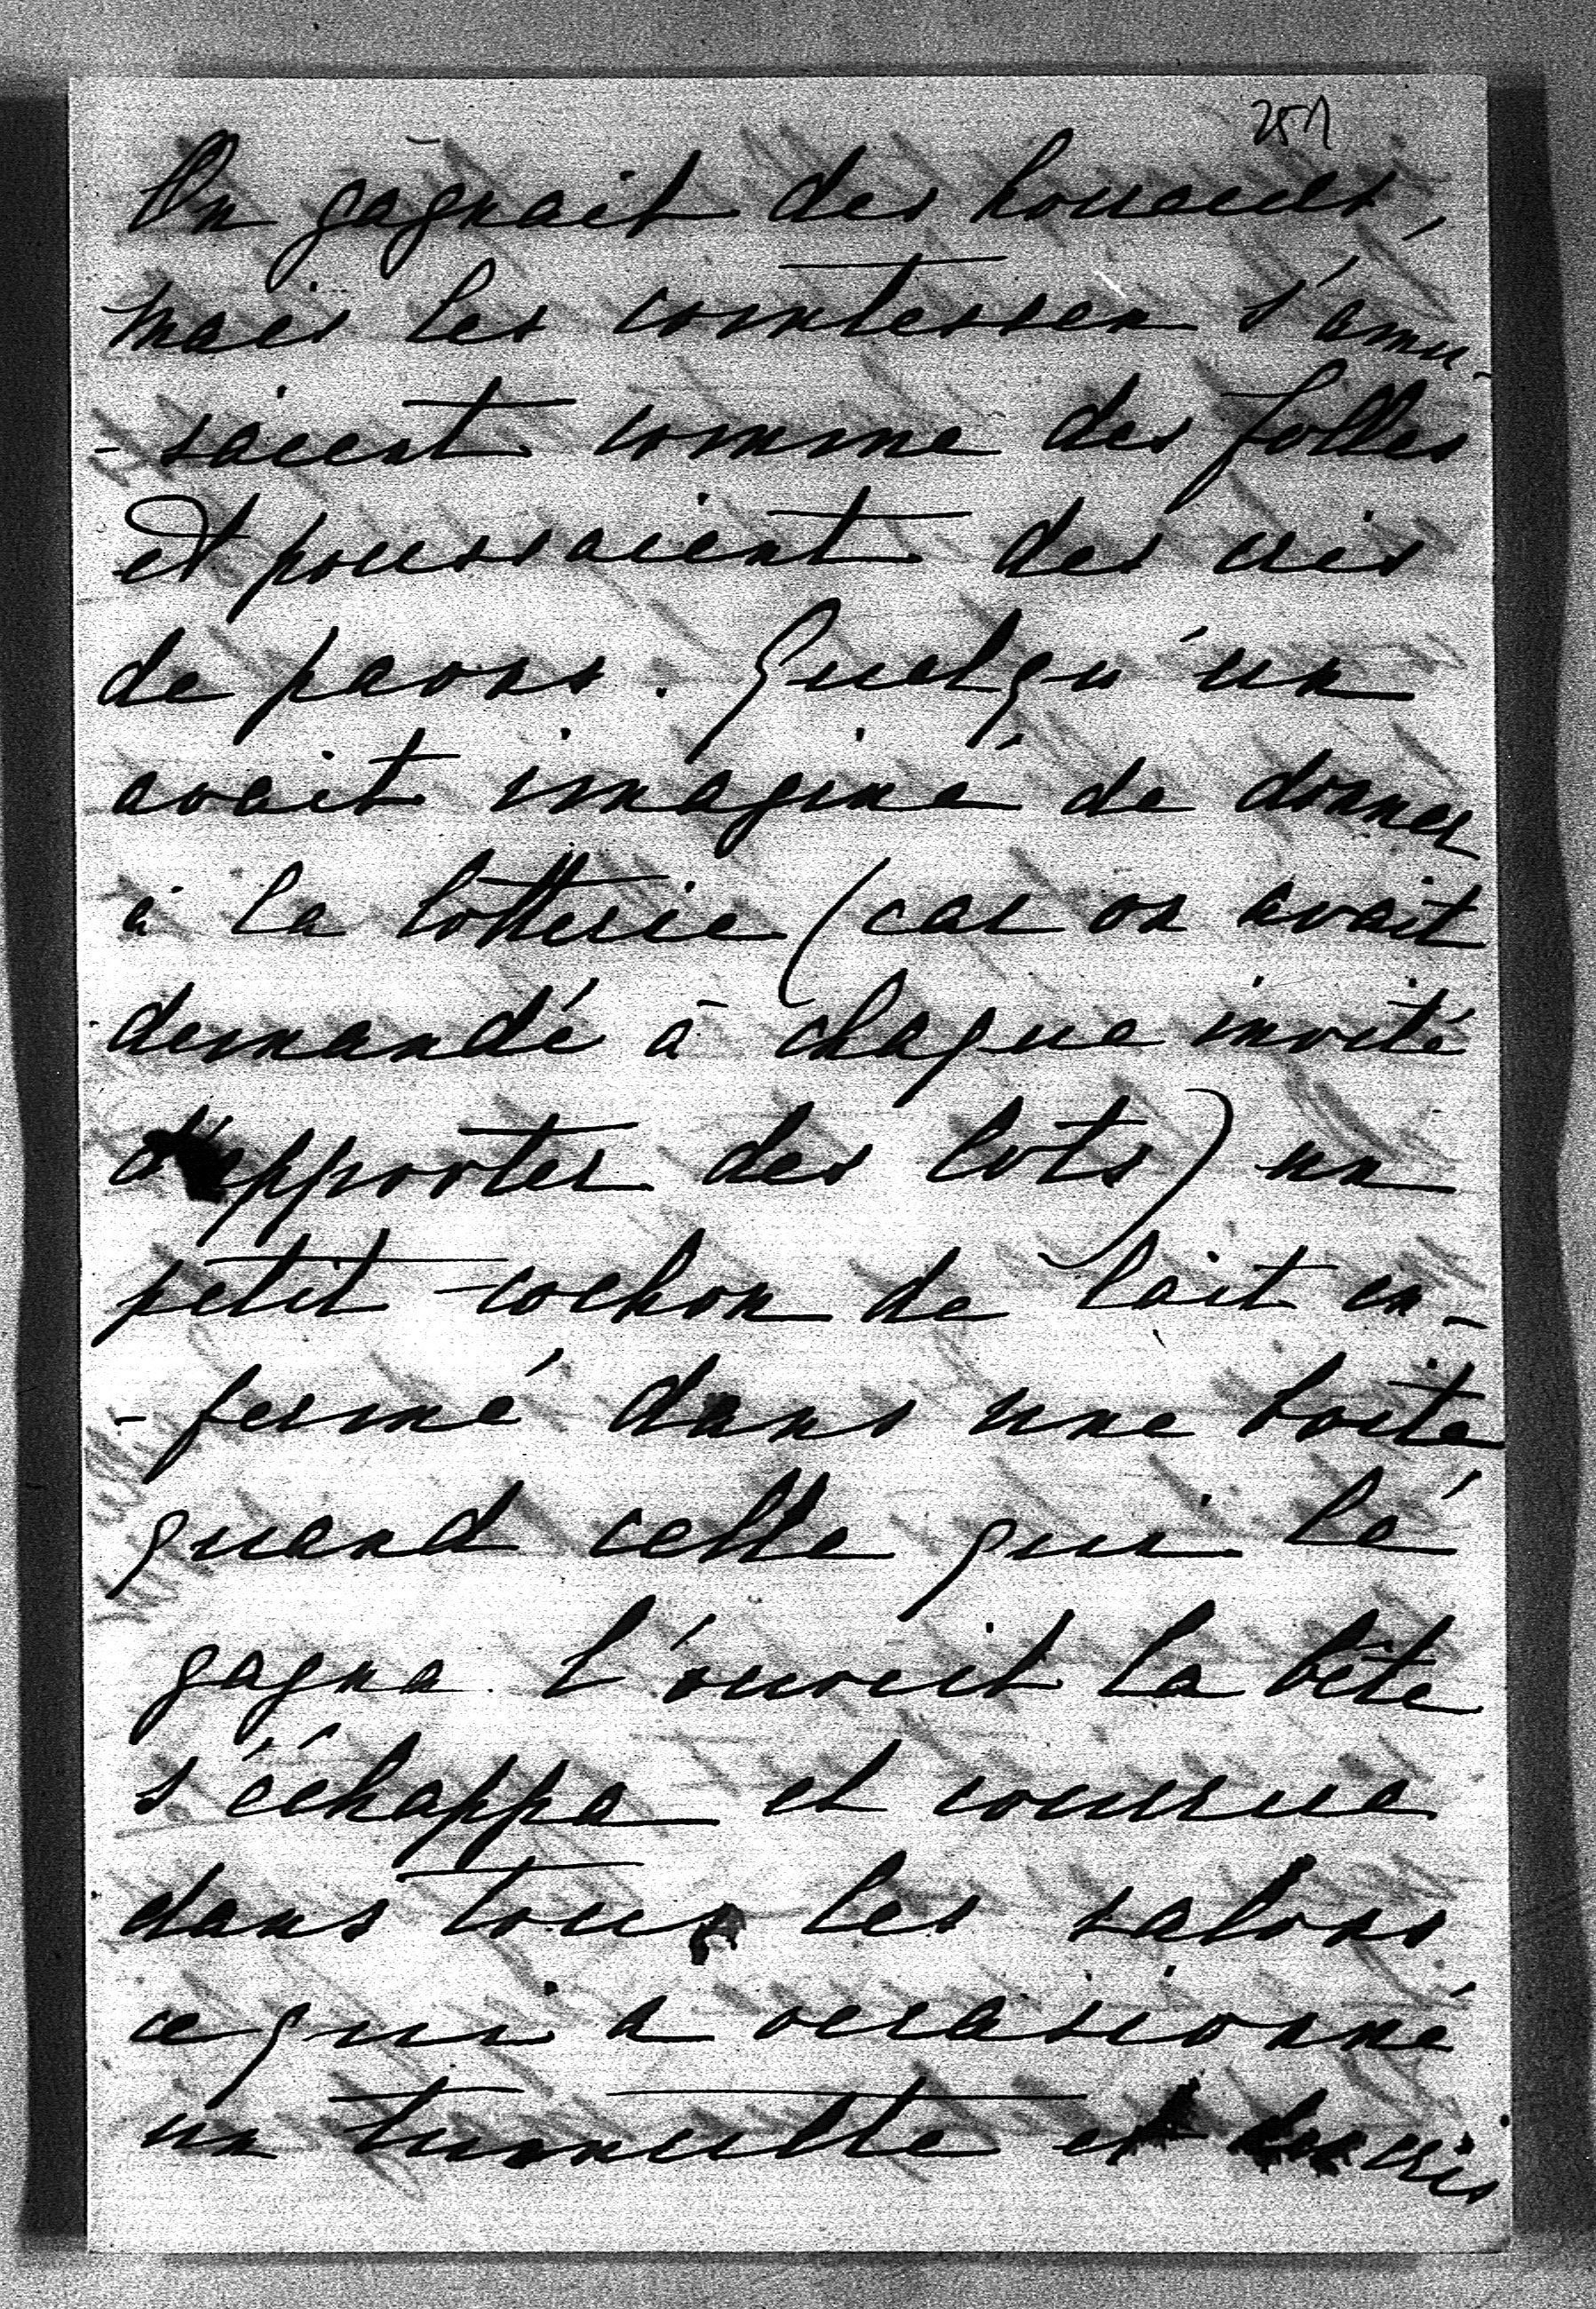 251
On gagnait des houaeries,
mais les comtesses s'amu-
-saient comme des folles
et poussaient des cris
de paons. Quelqu'un
avait imaginé de donner
à la lotterie (car on avait
demandé à chaque invité
d'apporter des lots) un
petit cochon de lait en-
-fermé dans une boite
quand celle qui le
gagna l'ouvrit la bête
s'échappa et courrue
dans tous les salons
ce qui a occasionné
un tumulte et des cris